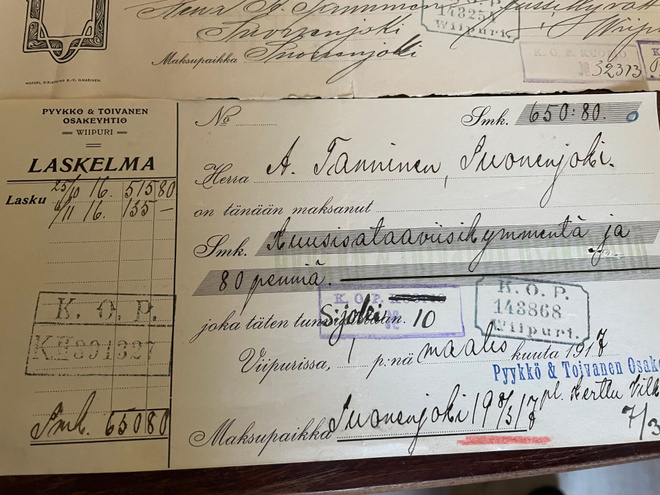 Herra A. Tanninen
Suonenjoki
Maksupaikka Suonenjoki
K.O.P.
143258
Wiipuri.
K. O. P. KUOPIO
№ 32313
PYYKKÖ & TOIVANEN
OSAKEYHTIO
WIIPURI
LASKELMA
Lasku 25/10 16. 515 80
6/11 16. 135 —
K. O. P.
KH391327
Smk. 650 80
No
Smk. 650:80.
Herra A. Tanninen, Suonenjoki.
on tänään maksanut
Smk. Kuusisataaviisikymmentä ja
80 penniä.
K. O. P.
S:joki 10
joka täten
K. O. P.
143868
Wiipuri.
Viipurissa, 1 p:nä maalis kuuta 1917
Pyykkö & Toivanen Osake
pl. Kerttu Vilk
Maksupaikka Suonenjoki 19 8/3 17
7/3